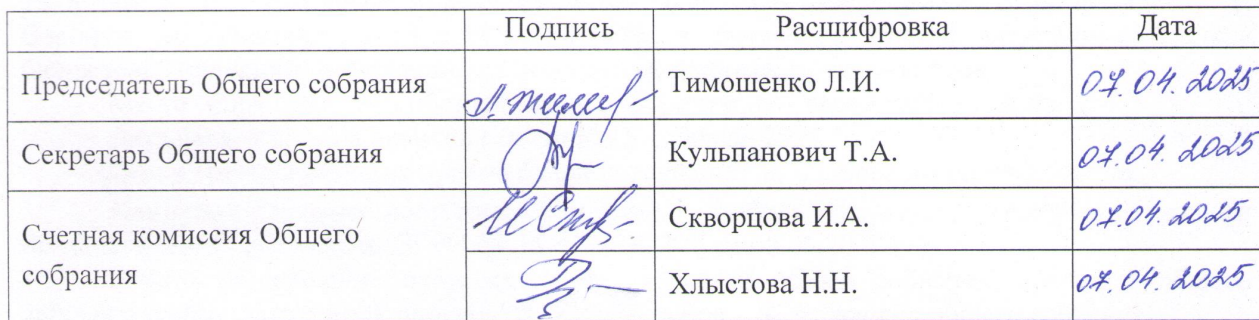 Подпись Расшифровка Дата
Председатель Общего собрания Тимошенко Л.И. 07.04.2025
Секретарь Общего собрания Кульпанович Т.А. 07.04.2025
Счетная комиссия Общего собрания Скворцова И.А. 07.04.2025
Хлыстова Н.Н. 07.04.2025